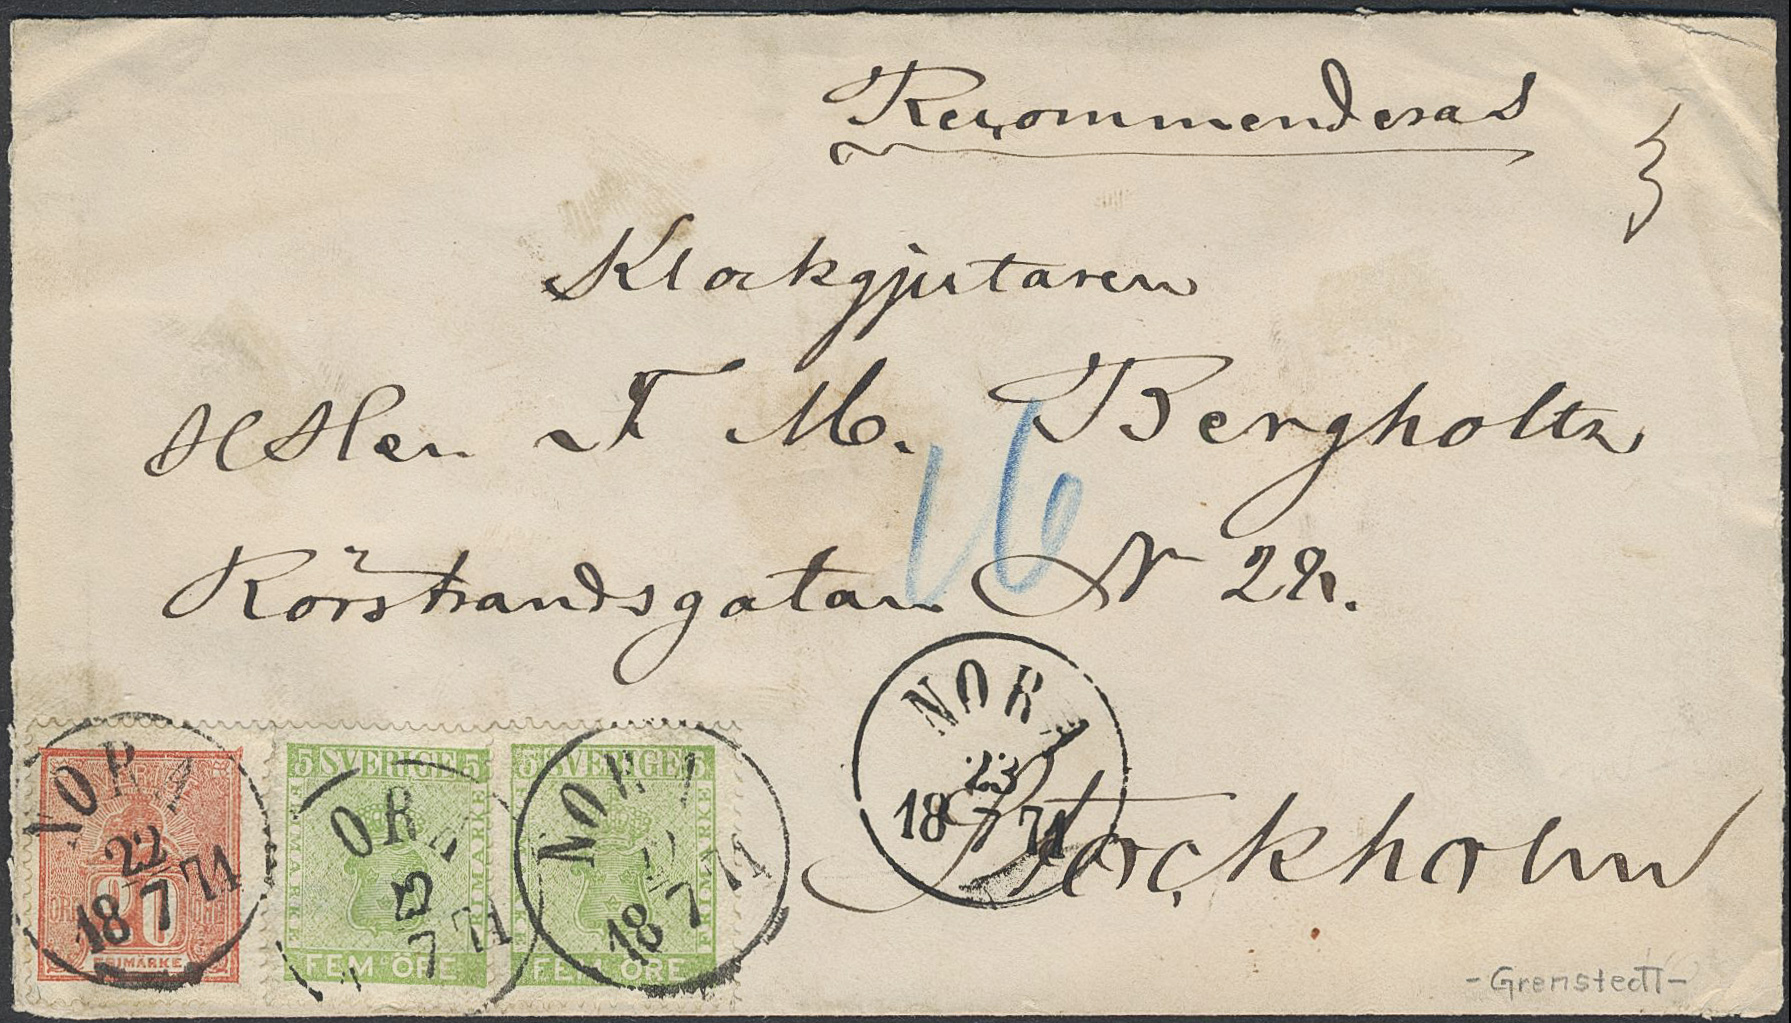 Recommenderas
Klockgjutaren
F M. Bergholtz
16
Rörstrandsgatan N
NORA
23
18 7 71
Stockholm
NORA
22
18 7 71
20
ÖRE ÖRE
FRIMÄRKE
5 SVERIGE 5
FRIMÄRKE FRIMÄRKE
FEM ÖRE
ORA
7 71
5 SVERIGE 5
FRIMÄRKE
FEM ÖRE
NORA
18 7 71
-Grenstedt-